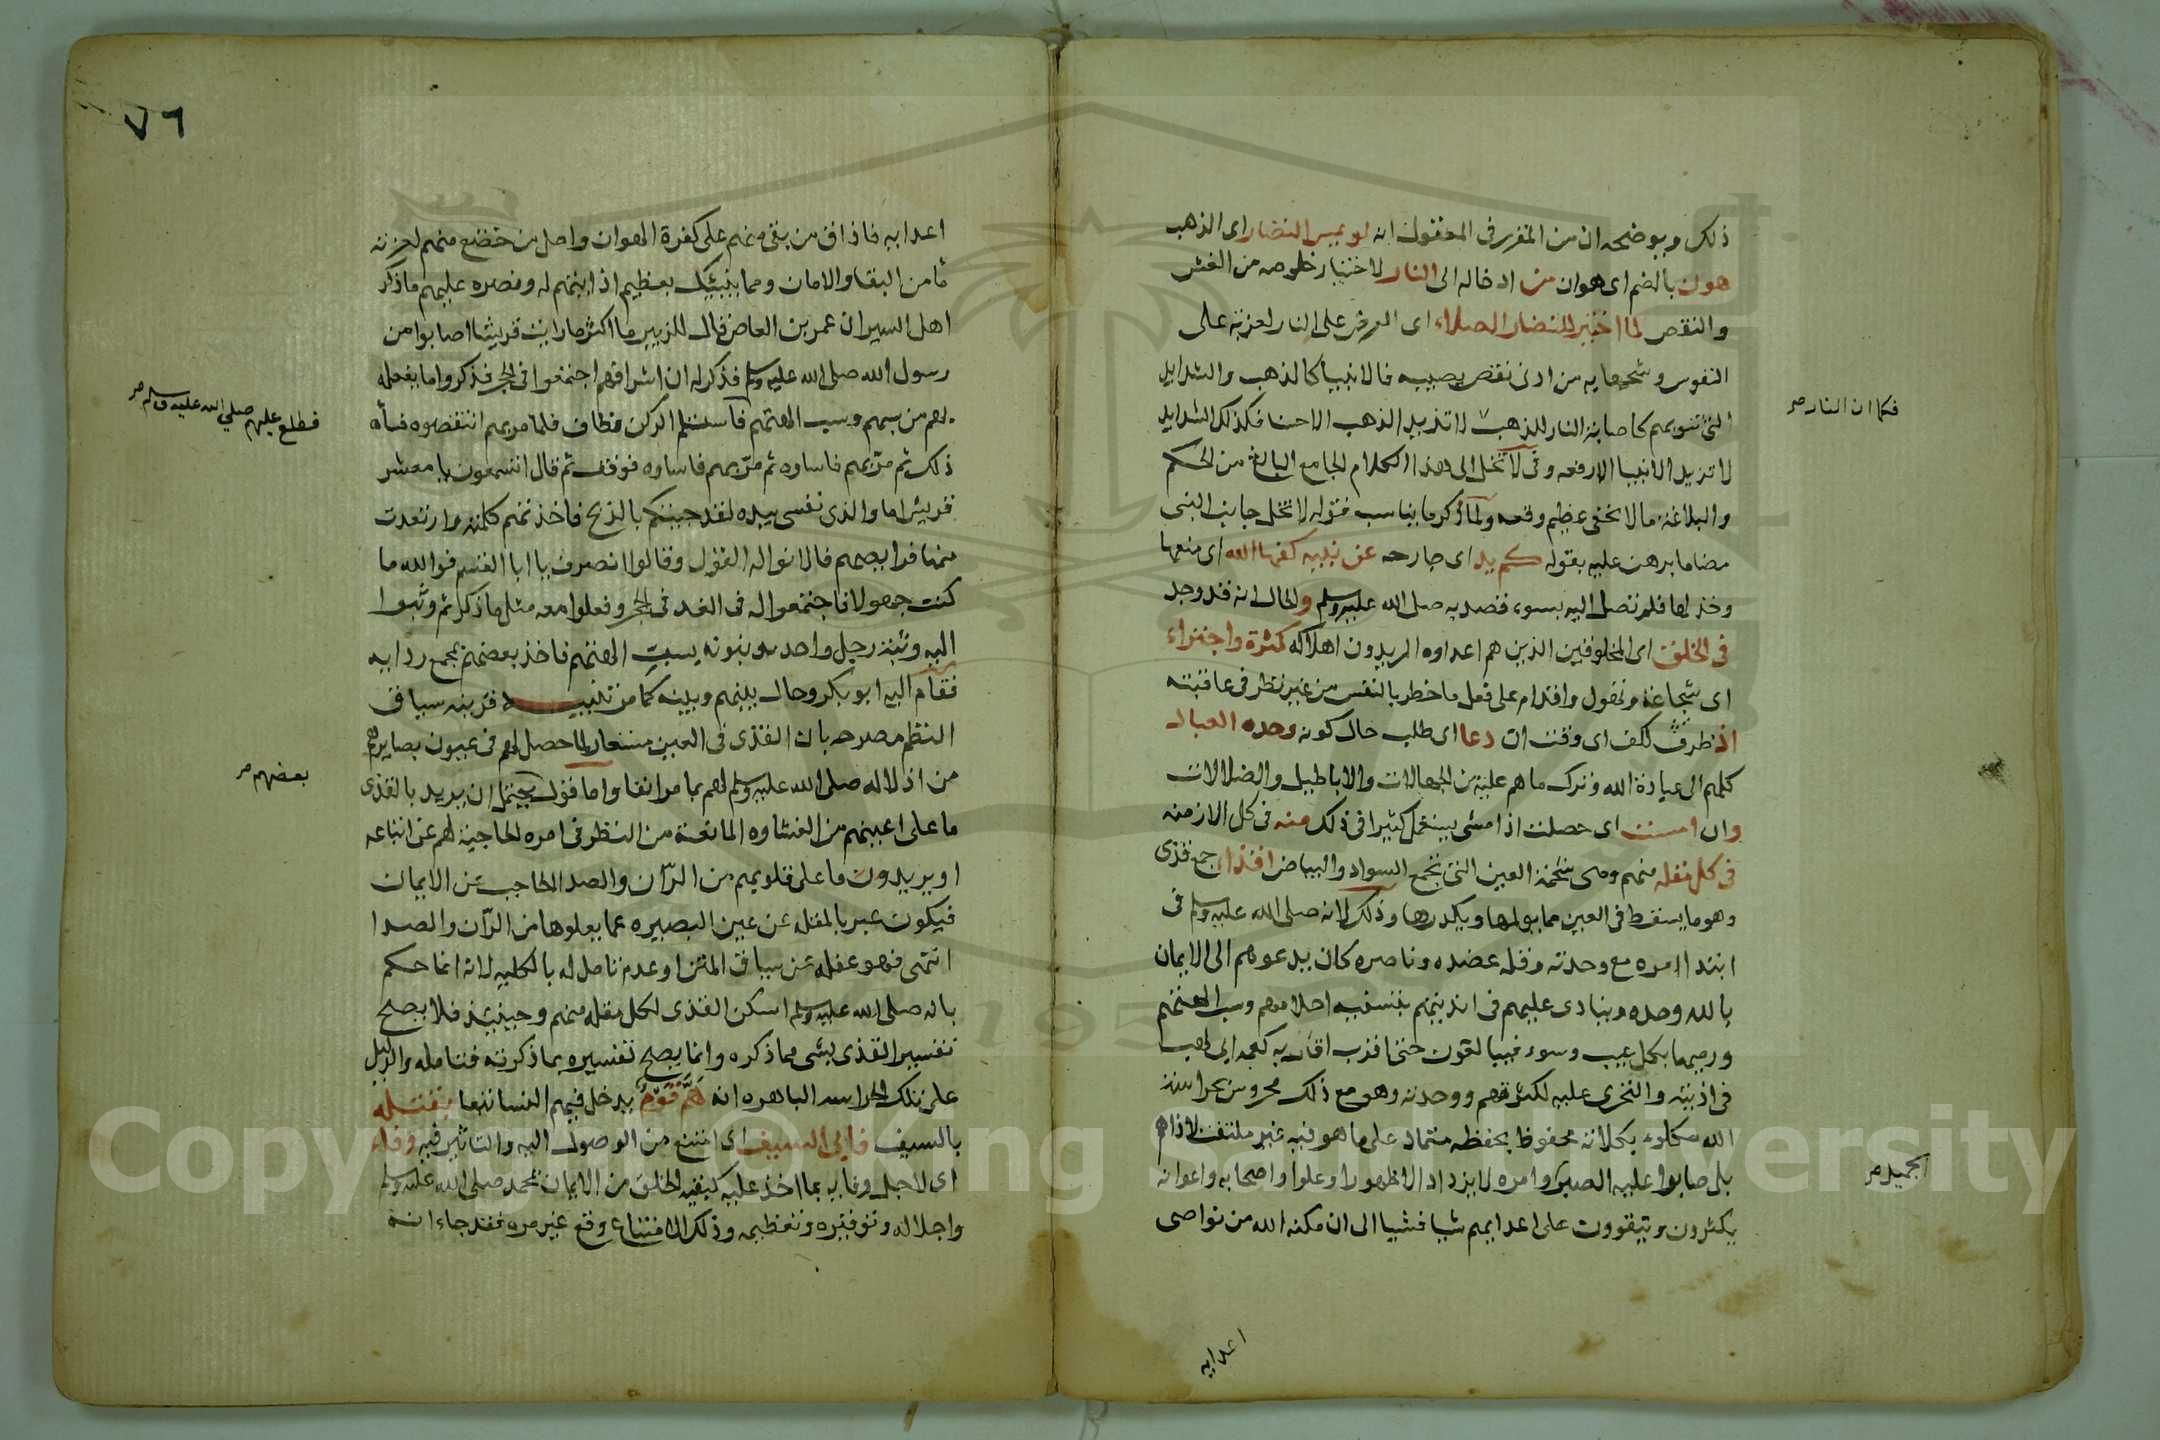 ذلك ويوضحه ان من المقرر في المعقول انه لو يمس النضار اى الذهب
هون بالضم اى هوان من ادخاله الى النار لاختبار خلوصه من الغش
والنقص لما اختير للنضار الصلاء اى العرض على النار لعزته على
النفوس وشحها به من ادنى نقص يصيبه فالانبيا كالذهب والشدايد
التى تنوبهم كاصابة النار للذهب لا تزيد الذهب الا حسنا فكذلك الشدايد
فكما ان النار صر
لا تزيد الانبيا الا رفعه وفى لا تخل الى هذا الكلام الجامع البالغ من الحكم
والبلاغة ما لا يخفى عظيم وقعه ولما ذكر ما يناسب قوله لا تخل جانب النبى
مضاما برهن عليه بقوله كم يد اى جارحه عن نبيه كفها الله اى منعها
وخذلها فلم تصل اليه بسوء قصد به صلى الله عليه وسلم والحال انه قد وجد
فى الخلق اى المخلوقين الذين هم اعداوه المريدون اهلاكه كثرة واجتراء
اى شجاعة وتقول واقدام على فعل ما خطر بالنفس من غير نظر فى عاقبته
اذ ظرف لكف اى وقت ان دعا اى طلب حال كونه وحده العباد
كلهم الى عبادة الله وترك ما هم عليه من الجهالات والاباطيل والضلالات
وان امست اى حصلت اذ امسى يستعمل كثيرا فى ذلك منه فى كل الازمنه
فى كل مقله منهم وهى شحمة العين التى تجمع السواد والبياض اقذاء جمع قذى
وهو ما يسقط فى العين مما يولمها ويكدرها وذلك لانه صلى الله عليه وسلم فى
ابتدا امره مع وحدته وقلة عضده وناصره كان يدعوهم الى الايمان
بالله وحده وينادى عليهم فى انديتهم بتسفيه احلامهم وسب الهتهم
ورميها بكل عيب وسوء فيبالغون حتى اقرب اقاربه كعمه ابى لهب
فى اذيته والتجرى عليه لكثرتهم ووحدته وهو مع ذلك محروس بحراسة
الله مكلوء بكلاته محفوظ بحفظه متماد على ما هو فيه غير ملتفت لاذاهم
بل صابرا عليه الصبر وامره لا يزداد الا ظهورا وعلوا واصحابه واعوانه
الجميل صر
يكثرون ويتقوون على اعدايهم شيا فشيا الى ان مكنه الله من نواصى
اعدايه
٧٦
اعدايه فاذاق من بقى منهم على كفرة الهوان واحل من خضع منهم لعزته
مامن البقا والامان ومما ينبيك بعظيم اذايتهم له ونصره عليهم ما ذكر
اهل السير ان عمر بن العاص قال للزبير ما اكثر ما رايت قريشا اصابوا من
رسول الله صلى الله عليه وسلم فذكر له ان اشرافهم اجتمعوا فى الحجر فذكروا ما يفعله
فطلع عليهم صلى الله عليه وسلم صر
بهم من سبهم وسب الهتهم فاستلم الركن وطاف فلما مر بهم انتقصوه فساه
ذلك ثم مر بهم فاساوه ثم مر بهم فاساوه فوقف ثم قال اتسمعون يا معشر
قريش اما والذى نفسى بيده لقد جيتكم بالذبح فاخذتهم كلمته وارتعدت
منها فرايصهم فالانوا له القول وقالوا انصرف يا ابا القسم فوالله ما
كنت جهولا فاجتمعوا له فى الغد فى الحجر وفعلوا معه مثل ما ذكر ثم وثبوا
اليه وثبة رجل واحد يوبنونه بسب الهتهم فاخذ بعضهم بمجمع ردايه
فقام اليه ابو بكر وحال بينهم وبينه كما مر تنبيه قرينه سياق
النظم مصرحه بان القذى فى العين مستعار لما حصل لهم فى عيون بصايرهم
من اذلاله صلى الله عليه وسلم لهم بما مر انفا واما قول يحتمل ان يريد بالقذى
بعضهم صر
ما على اعينهم من الغشاوه المانعة من النظر فى امره الحاجبة لهم عن اتباعه
او يريدون ما على قلوبهم من الران والصد الحاجب عن الايمان
فيكون عبر بالمقله عن عين البصيره عما يعلوها من الران والصدا
انتهى فهو غفلة عن سياق المتن او عدم تامل له بالكليه لانه انما حكم
بانه صلى الله عليه وسلم اسكن القذى لكل مقله منهم وحينيذ فلا يصح
تفسير القذى بشى مما ذكره وانما يصح تفسيره بما ذكرته فتامله والدليل
على تلك الحراسه الباهره انه هم قوم يدخل فيهم النسا تبعا بقتله
بالسيف فابى السيف اى امتنع من الوصول اليه والتاثير فيه وفاء
اى لاجل وفايه بما اخذ عليه كبقية الخلق من الايمان بمحمد صلى الله عليه وسلم
واجلاله وتوقيره وتعظيمه وذلك الامتناع وقع غير مره فقد جاء انه